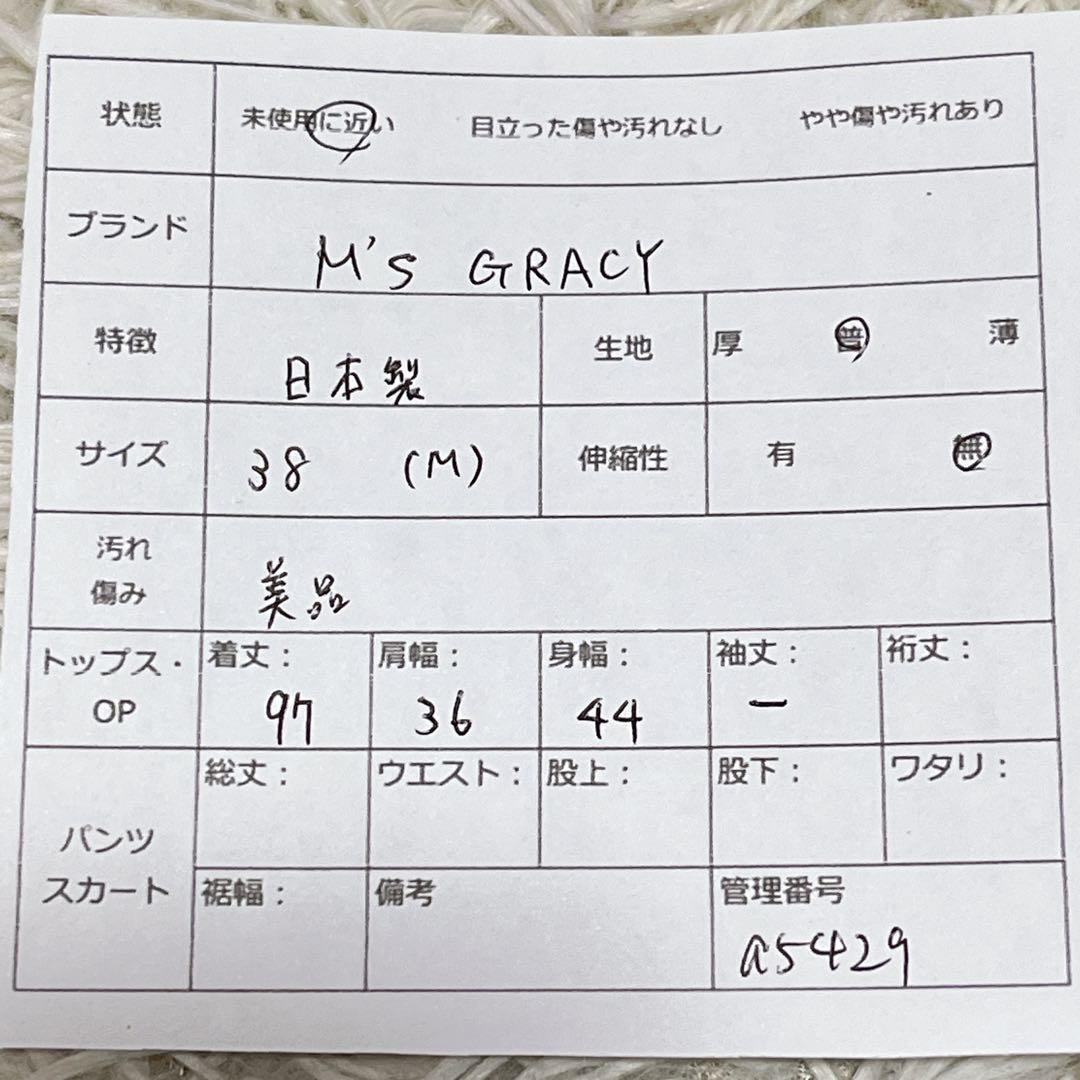 状態 未使用に近い 目立った傷や汚れなし やや傷や汚れあり
ブランド M's GRACY
特徴 日本製 生地 厚 普 薄
サイズ 38 (M) 伸縮性 有 無
汚れ
傷み 美品
トップス・ 着丈: 肩幅: 身幅: 袖丈: 裄丈:
OP 97 36 44 ー
総丈: ウエスト: 股上: 股下: ワタリ:
パンツ
スカート 裾幅: 備考 管理番号
a5429